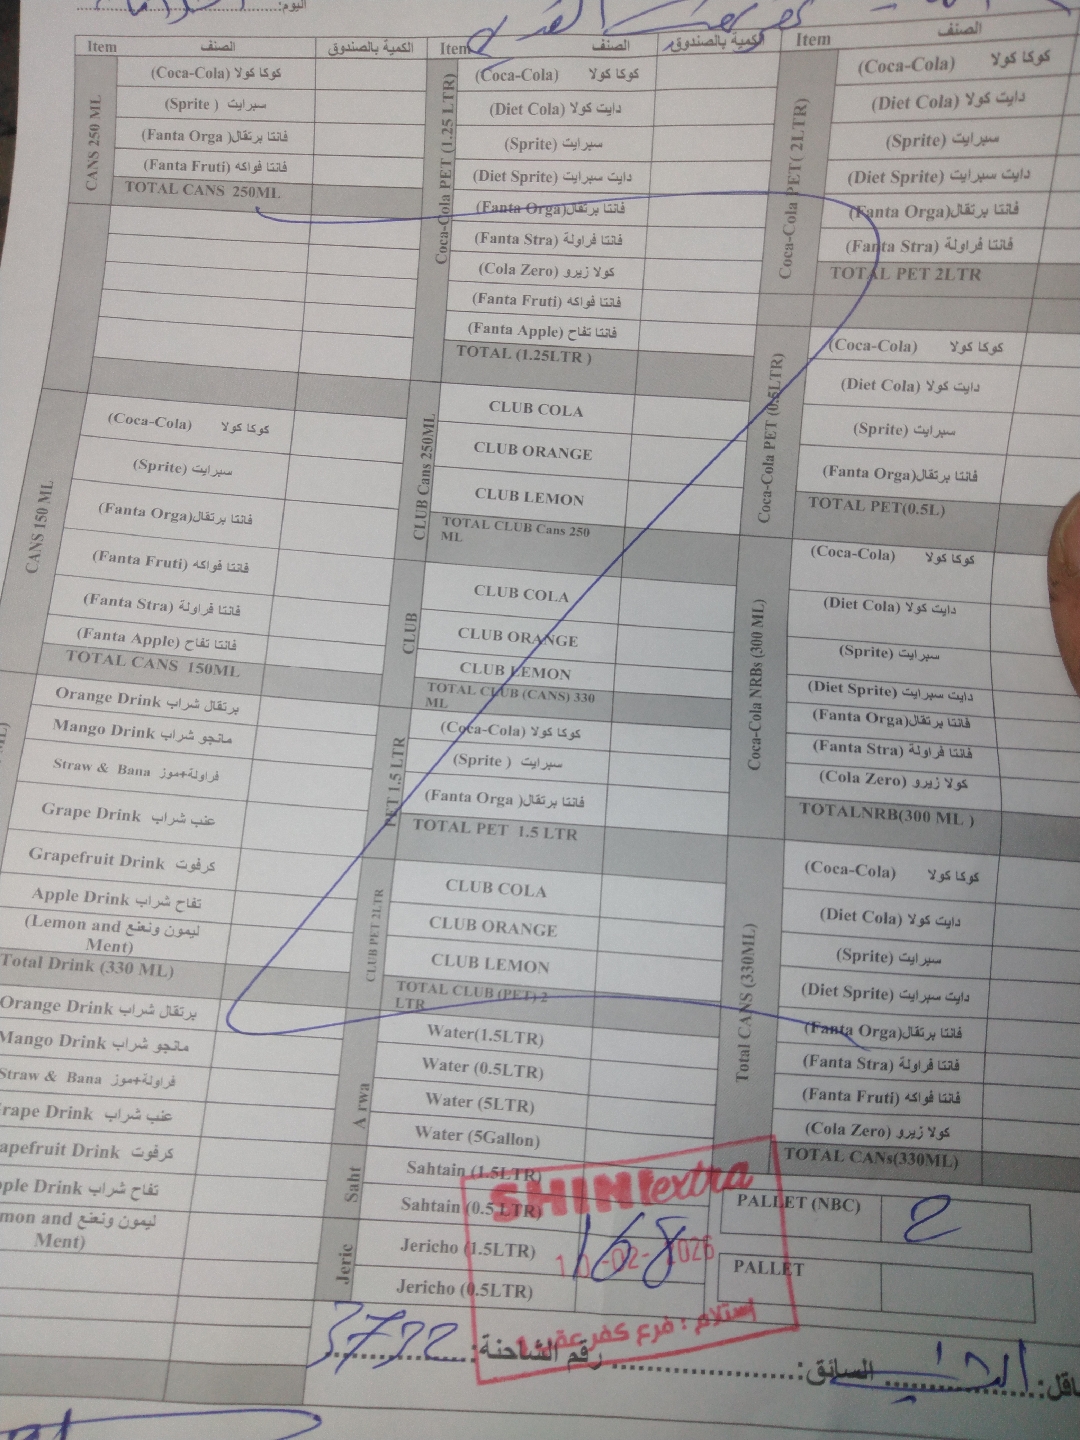 اليوم:
Item الصنف الكمية بالصندوق Item الصنف الكمية بالصندوق Item الصنف
CANS 250 ML
(Coca-Cola) كوكا كولا
(Sprite ) سبرايت
(Fanta Orga )فانتا برتقال
(Fanta Fruti) فانتا فواكه
TOTAL CANS 250ML
CANS 150 ML
(Coca-Cola) كوكا كولا
(Sprite) سبرايت
(Fanta Orga)فانتا برتقال
(Fanta Fruti) فانتا فواكه
(Fanta Stra) فانتا فراولة
(Fanta Apple) فانتا تفاح
TOTAL CANS 150ML
Orange Drink برتقال شراب
Mango Drink مانجو شراب
Straw & Bana فراولة+موز
Grape Drink عنب شراب
Grapefruit Drink كرفوت
Apple Drink تفاح شراب
(Lemon and ليمون ونعنع
Ment)
Total Drink (330 ML)
Orange Drink برتقال شراب
Mango Drink مانجو شراب
Straw & Bana فراولة+موز
rape Drink عنب شراب
apefruit Drink كرفوت
ple Drink تفاح شراب
mon and ليمون ونعنع
Ment)
Coca-Cola PET (1.25 LTR)
(Coca-Cola) كوكا كولا
(Diet Cola) دايت كولا
(Sprite) سبرايت
(Diet Sprite) دايت سبرايت
(Fanta Orga)فانتا برتقال
(Fanta Stra) فانتا فراولة
(Cola Zero) كولا زيرو
(Fanta Fruti) فانتا فواكه
(Fanta Apple) فانتا تفاح
TOTAL (1.25LTR )
CLUB Cans 250ML
CLUB COLA
CLUB ORANGE
CLUB LEMON
TOTAL CLUB Cans 250
ML
CLUB
CLUB COLA
CLUB ORANGE
CLUB LEMON
TOTAL CLUB (CANS) 330
ML
PET 1.5 LTR
(Coca-Cola) كوكا كولا
(Sprite ) سبرايت
(Fanta Orga )فانتا برتقال
TOTAL PET 1.5 LTR
CLUB PET 2LTR
CLUB COLA
CLUB ORANGE
CLUB LEMON
TOTAL CLUB (PET) 2
LTR
A rwa
Water(1.5LTR)
Water (0.5LTR)
Water (5LTR)
Water (5Gallon)
Saht
Sahtain (1.5LTR)
Sahtain (0.5 LTR)
Jeric
Jericho (1.5LTR) 168
Jericho (0.5LTR)
Coca-Cola PET( 2LTR)
(Coca-Cola) كوكا كولا
(Diet Cola) دايت كولا
(Sprite) سبرايت
(Diet Sprite) دايت سبرايت
(Fanta Orga)فانتا برتقال
(Fanta Stra) فانتا فراولة
TOTAL PET 2LTR
Coca-Cola PET (0.5LTR)
(Coca-Cola) كوكا كولا
(Diet Cola) دايت كولا
(Sprite) سبرايت
(Fanta Orga)فانتا برتقال
TOTAL PET(0.5L)
Coca-Cola NRBs (300 ML)
(Coca-Cola) كوكا كولا
(Diet Cola) دايت كولا
(Sprite) سبرايت
(Diet Sprite) دايت سبرايت
(Fanta Orga)فانتا برتقال
(Fanta Stra) فانتا فراولة
(Cola Zero) كولا زيرو
TOTALNRB(300 ML )
Total CANS (330ML)
(Coca-Cola) كوكا كولا
(Diet Cola) دايت كولا
(Sprite) سبرايت
(Diet Sprite) دايت سبرايت
(Fanta Orga)فانتا برتقال
(Fanta Stra) فانتا فراولة
(Fanta Fruti) فانتا فواكه
(Cola Zero) كولا زيرو
TOTAL CANs(330ML)
PALLET (NBC) 2
PALLET
SHINI extra
10-02-2026
إستلام : فرع كفرعقب
اقل: السائق: رقم الشاحنة: 3732